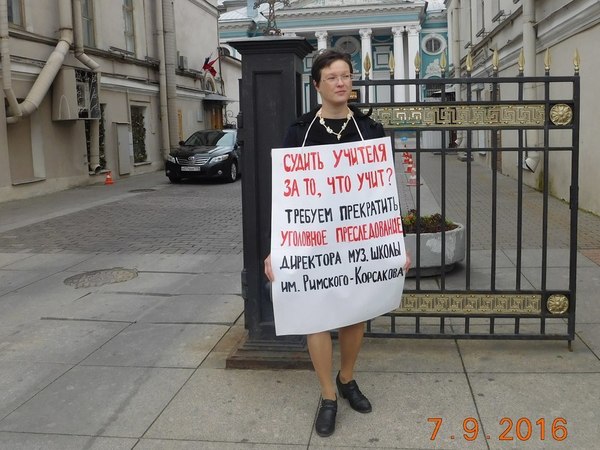 СУДИТЬ УЧИТЕЛЯ
ЗА ТО, ЧТО УЧИТ?
ТРЕБУЕМ ПРЕКРАТИТЬ
УГОЛОВНОЕ ПРЕСЛЕДОВАНИЕ
ДИРЕКТОРА МУЗ. ШКОЛЫ
ИМ. РИМСКОГО-КОРСАКОВА
7.9.2016